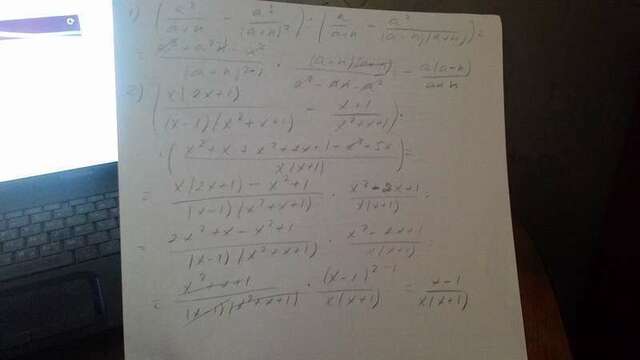 1) (a³/(a+n) - a²/(a+n)²) · (a/(a+n) - a²/((a-n)(a+n))) =
= (a³+a²n-x²)/(a+n)² · ((a+n)(a-n))/(a²-an-a²) = a(a-n)/(a+n)
2) (x(2x+1)/((x-1)(x²+x+1)) - (x+1)/(x²+x+1)) ·
· ((x²+x+x²+2x+1-x²+5x)/(x(x+1))) =
= (x(2x+1)-x²+1)/((x-1)(x²+x+1)) · (x²-2x+1)/(x(x+1))
= (2x²+x-x²+1)/((x-1)(x²+x+1)) · (x²-2x+1)/(x(x+1))
= (x²+x+1)/((x-1)(x²+x+1)) · (x-1)²/(x(x+1)) = (x-1)/(x(x+1))